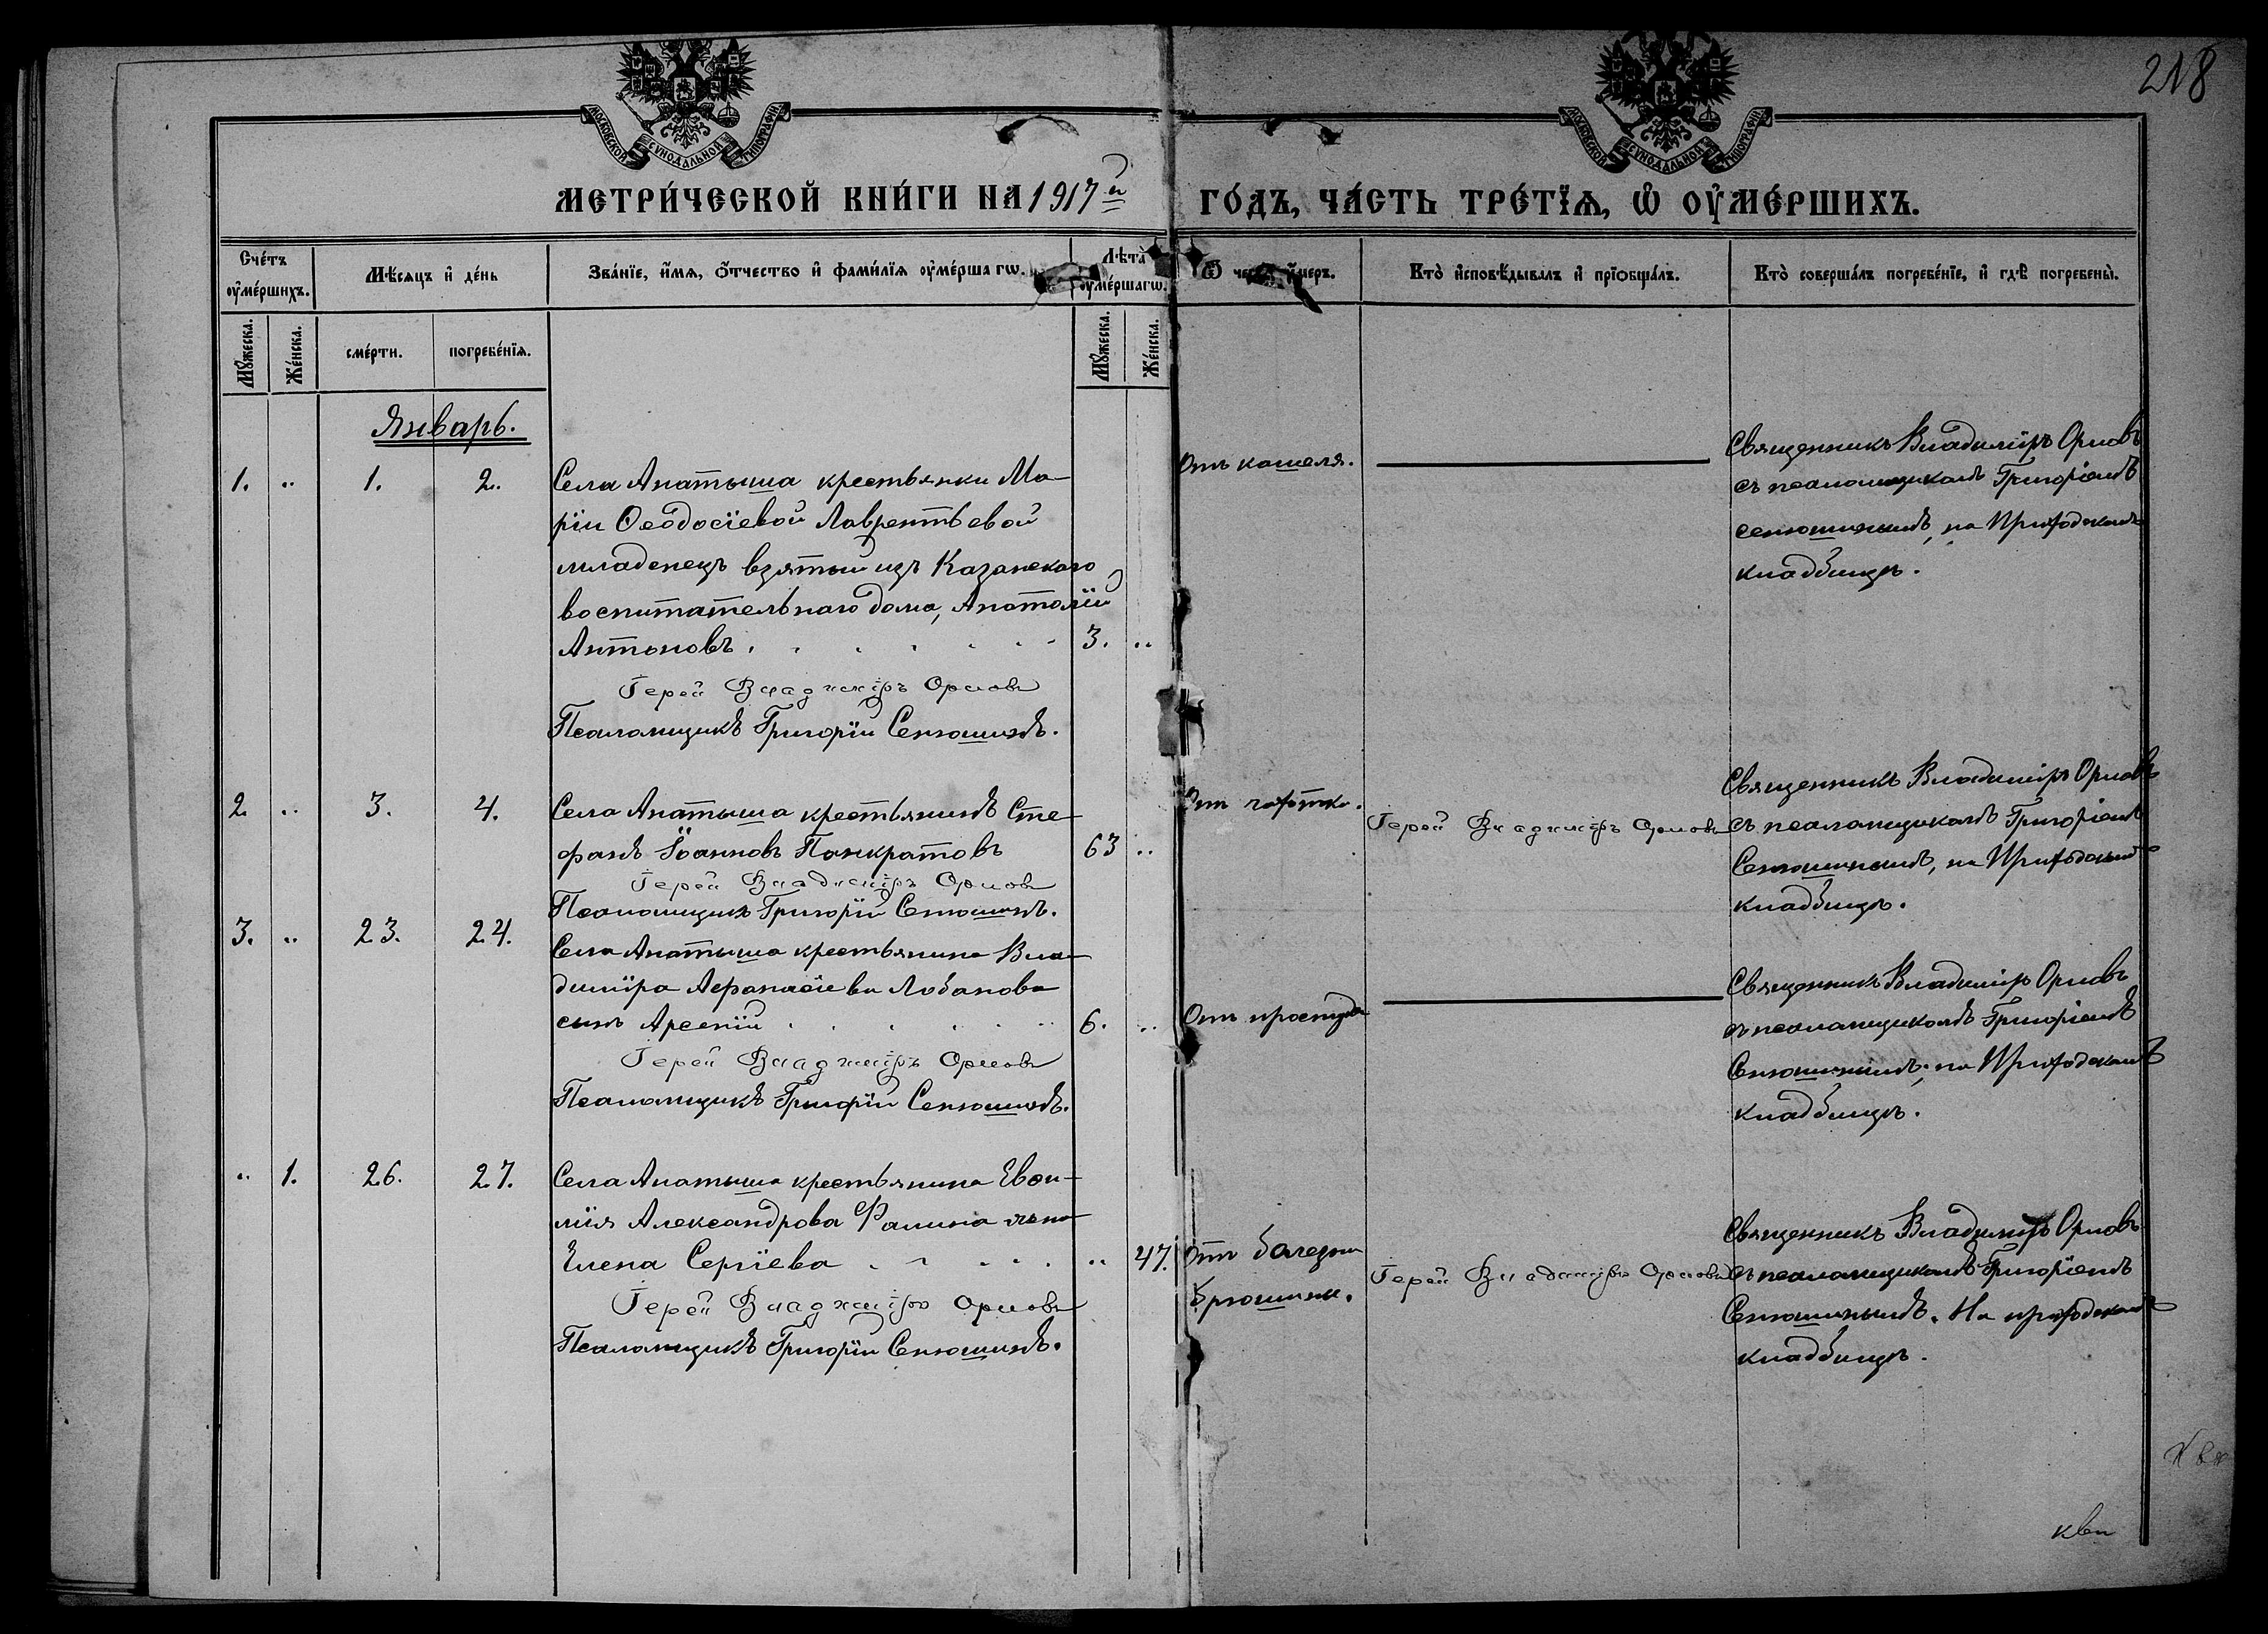 218
МОСКОВСКОЙ СУНОДАЛЬНОЙ ТИПОГРАФІИ
МОСКОВСКОЙ СУНОДАЛЬНОЙ ТИПОГРАФІИ
МЕТРИ́ЧЕСКОЙ КНИ́ГИ НА 1917й ГО́ДЪ, ЧА́СТЬ ТРЕ́ТЇѦ, Ѡ҆ ОУ҆МЕ́РШИХЪ.
Сче́тъ оу҆ме́ршихъ.
Мѣ́сяцъ и҆ де́нь
Зва́нїе, и҆́мѧ, ѻ҆́тчество и҆ фами́лїѧ оу҆ме́ршагѡ.
Лѣта̀ оу҆ме́ршагѡ.
Ѿ чегѡ̀ оу҆́меръ.
Кто̀ и҆сповѣ́дывалъ и҆ прїѻбща́лъ.
Кто̀ соверша́лъ погребе́нїе, и҆ гдѣ̀ погребены̀.
Мꙋ́жеска.
Же́нска.
сме́рти.
погребе́нїѧ.
Мꙋ́жеска.
Же́нска.
Январь.
1. „ 1. 2.
Села Анатыша крестьянки Ма-
ріи Ѳеодосіевой Лаврентьевой
младенецъ взятый изъ Казанскаго
воспитательнаго дома, Анатолій
Антоновъ. 3. „
Іерей Владиміръ Орловъ
Псаломщикъ Григорій Сенюшинъ.
Отъ кашеля.
Священникъ Владиміръ Орловъ
съ псаломщикомъ Григоріемъ
Сенюшинымъ, на Приходскомъ
кладбищѣ.
2. „ 3. 4.
Села Анатыша крестьянинъ Сте-
фанъ Іоанновъ Панкратовъ 63 „
Іерей Владиміръ Орловъ
Псаломщикъ Григорій Сенюшинъ.
Отъ чахотки.
Іерей Владиміръ Орловъ
Священникъ Владиміръ Орловъ
съ псаломщикомъ Григоріемъ
Сенюшинымъ, на Приходскомъ
кладбищѣ.
3. „ 23. 24.
Села Анатыша крестьянина Вла-
диміра Аѳанасіева Лобанова
сынъ Арсеній 6. „
Іерей Владиміръ Орловъ
Псаломщикъ Григорій Сенюшинъ.
Отъ простуды
Священникъ Владиміръ Орловъ
съ псаломщикомъ Григоріемъ
Сенюшинымъ, на Приходскомъ
кладбищѣ.
„ 1. 26. 27.
Села Анатыша крестьянина Евѳи-
мія Александрова Фалина жена
Елена Сергіева „ 47.
Іерей Владиміръ Орловъ
Псаломщикъ Григорій Сенюшинъ.
Отъ болезни
брюшины.
Іерей Владиміръ Орловъ
Священникъ Владиміръ Орловъ
съ псаломщикомъ Григоріемъ
Сенюшинымъ. На приходскомъ
кладбищѣ.